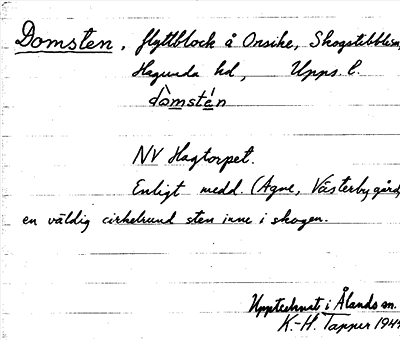 Domsten, flyttblock å Orsike, Skogstibble sn,
Hagunda hd, Upps. l.
dòmstén
NV Hagtorpet.
Enligt medd. (Agne, Västerby gård)
en väldig cirkelrund sten inne i skogen.
Upptecknat i Ålands sn.
K.-H. Tapper